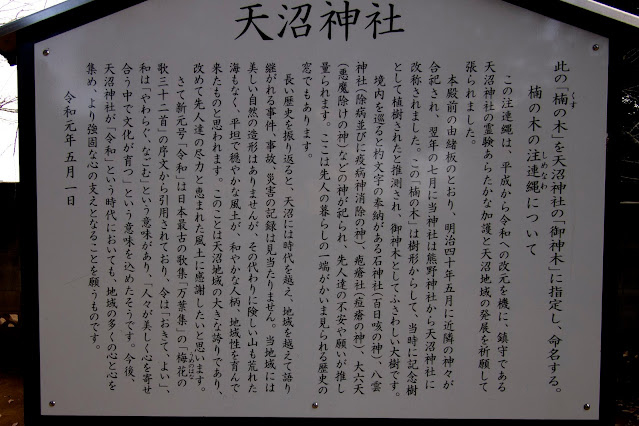 天沼神社
此の「楠の木」を天沼神社の「御神木」に指定し、命名する。
くす
楠の木の注連縄について
しめなわ
この注連縄は、平成から令和への改元を機に、鎮守である
天沼神社の霊験あらたかな加護と天沼地域の発展を祈願して
張られました。
本殿前の由緒板のとおり、明治四十年五月に近隣の神々が
合祀され、翌年の七月に当神社は熊野神社から天沼神社に
改称されました。この「楠の木」は樹形からして、当時に記念樹
として植樹されたと推測され、御神木としてふさわしい大樹です。
境内を巡ると杓文字の奉納がある石神社(百日咳の神)、八雲
神社(除病並びに疫病神消除の神)、疱瘡社(痘瘡の神)、大六天
(悪魔除けの神)などの神が祀られ、先人達の不安や願いが推し
量られます。ここは先人の暮らしの一端がかいま見られる歴史の
窓でもあります。
長い歴史を振り返ると、天沼には時代を越え、地域を越えて語り
継がれる事件、事故、災害の記録は見当たりません。当地域には
美しい自然の造形はありませんが、その代わりに険しい山も荒れた
海もなく、平坦で穏やかな風土が、和やかな人柄、地域性を育んで
来たものと思われます。このことは天沼地域の大きな誇りであり、
改めて先人達の尽力と恵まれた風土に感謝したいと思います。
さて新元号「令和」は日本最古の歌集「万葉集」の「梅花の
うめのはな
歌三十二首」の序文から引用されており、令は「おきて、よい」、
和は「やわらぐ、なごむ」という意味があり、「人々が美しく心を寄せ
合う中で文化が育つ」という意味を込めたそうです。今後、
天沼神社が「令和」という時代においても、地域の多くの心と心を
集め、より強固な心の支えとなることを願うものです。
令和元年五月一日